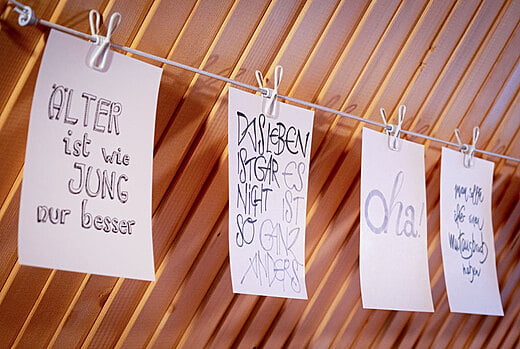 ÄLTER
ist wie
JUNG
nur besser
DAS LEBEN
IST GAR ES
NICHT IST
SO GANZ
ANDERS
oha!
man
Wutausbruch